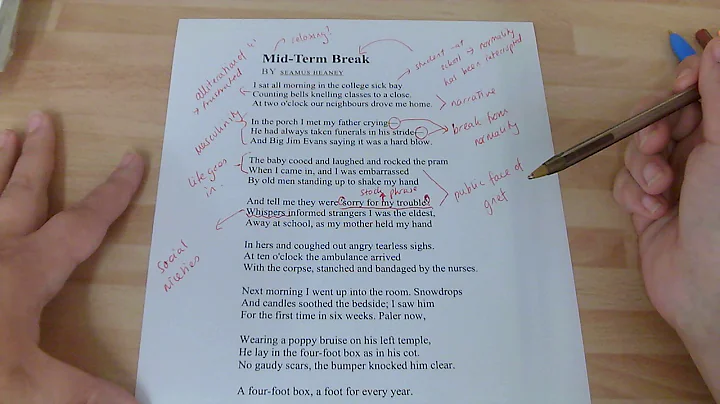 relaxing!
Mid-Term Break
BY SEAMUS HEANEY
student - at
school → normality
has been interrupted
alliteration of 'c'
I sat all morning in the college sick bay
Counting bells knelling classes to a close.
At two o'clock our neighbours drove me home.
narrative
masculinity
In the porch I met my father crying—
He had always taken funerals in his stride—
And Big Jim Evans saying it was a hard blow.
break from
normality
life goes
on
The baby cooed and laughed and rocked the pram
When I came in, and I was embarrassed
By old men standing up to shake my hand
public face of
grief
stock phrase
And tell me they were 'sorry for my trouble'.
Whispers informed strangers I was the eldest,
Away at school, as my mother held my hand
social
niceties
In hers and coughed out angry tearless sighs.
At ten o'clock the ambulance arrived
With the corpse, stanched and bandaged by the nurses.
Next morning I went up into the room. Snowdrops
And candles soothed the bedside; I saw him
For the first time in six weeks. Paler now,
Wearing a poppy bruise on his left temple,
He lay in the four-foot box as in his cot.
No gaudy scars, the bumper knocked him clear.
A four-foot box, a foot for every year.